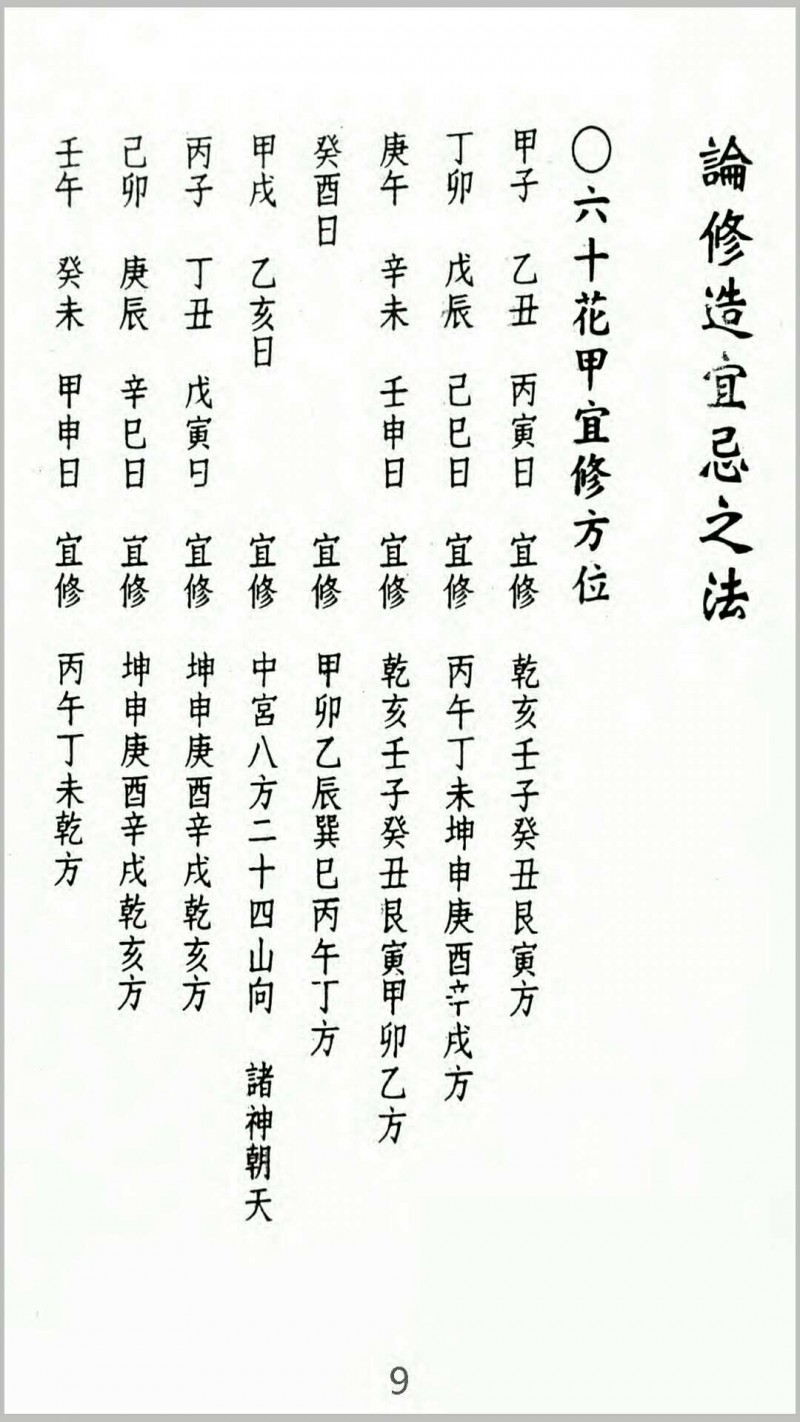 論修造宜忌之法
○六十花甲宜修方位
甲子 乙丑 丙寅日 宜修 乾亥壬子癸丑艮寅方
丁卯 戊辰 己巳日 宜修 丙午丁未坤申庚酉辛戌方
庚午 辛未 壬申日 宜修 乾亥壬子癸丑艮寅甲卯乙方
癸酉日 宜修 甲卯乙辰巽巳丙午丁方
甲戌 乙亥日 宜修 中宮八方二十四山向 諸神朝天
丙子 丁丑 戊寅日 宜修 坤申庚酉辛戌乾亥方
己卯 庚辰 辛巳日 宜修 坤申庚酉辛戌乾亥方
壬午 癸未 甲申日 宜修 丙午丁未乾方
9